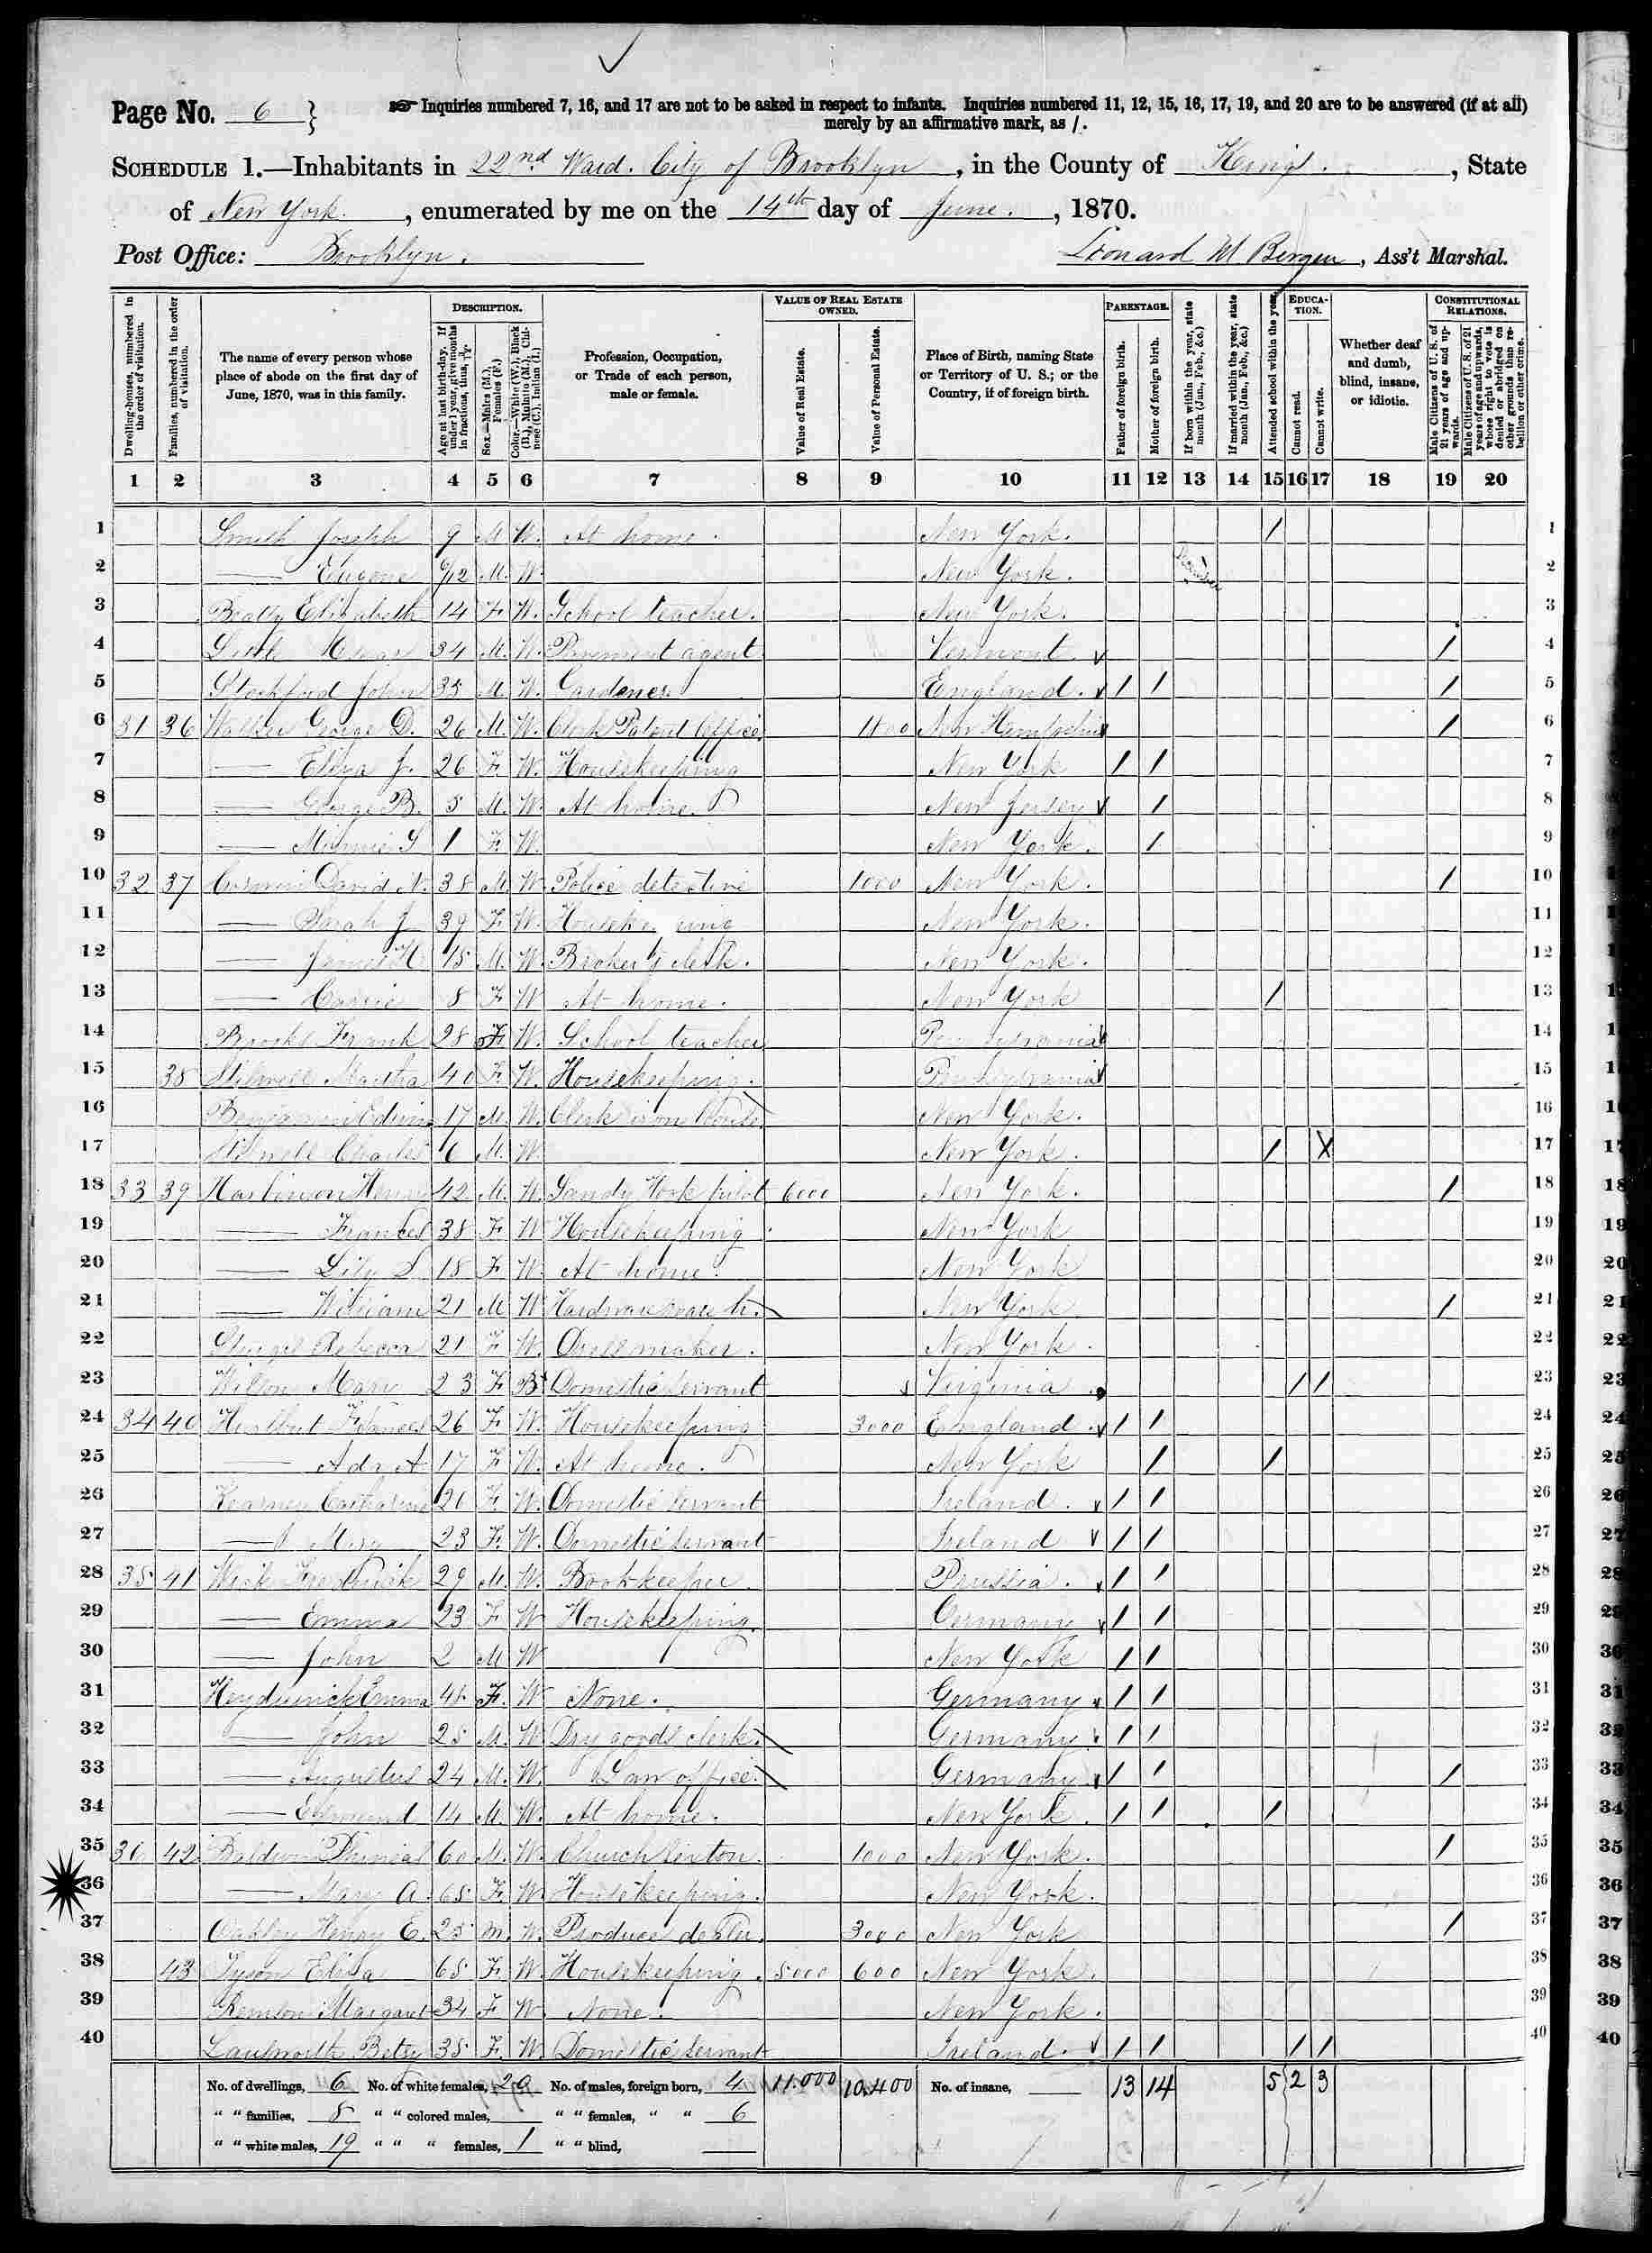 Page No. 6 }
Inquiries numbered 7, 16, and 17 are not to be asked in respect to infants. Inquiries numbered 11, 12, 15, 16, 17, 19, and 20 are to be answered (if at all)
merely by an affirmative mark, as /.
SCHEDULE 1.—Inhabitants in 22nd Ward. City of Brooklyn, in the County of Kings, State
of New York., enumerated by me on the 14th day of June., 1870.
Post Office: Brooklyn. Leonard M Bergen, Ass't Marshal.
Dwelling-houses, numbered in the order of visitation.
Families, numbered in the order of visitation.
The name of every person whose place of abode on the first day of June, 1870, was in this family.
DESCRIPTION.
Age at last birth-day. If under 1 year, give months in fractions, thus,
Sex.—Males (M.), Females (F.)
Color.—White (W.), Black (B.), Mulatto (M.), Chinese (C.), Indian (I.)
Profession, Occupation, or Trade of each person, male or female.
VALUE OF REAL ESTATE OWNED.
Value of Real Estate.
Value of Personal Estate.
Place of Birth, naming State or Territory of U. S.; or the Country, if of foreign birth.
PARENTAGE.
Father of foreign birth.
Mother of foreign birth.
If born within the year, state month (Jan., Feb., &c.)
If married within the year, state month (Jan., Feb., &c.)
Attended school within the year.
EDUCATION.
Cannot read.
Cannot write.
Whether deaf and dumb, blind, insane, or idiotic.
CONSTITUTIONAL RELATIONS.
Male Citizens of U. S. of 21 years of age and upwards.
Male Citizens of U. S. of 21 years of age and upwards, whose right to vote is denied or abridged on other grounds than rebellion or other crime.
1 2 3 4 5 6 7 8 9 10 11 12 13 14 15 16 17 18 19 20
1 Smith Joseph 9 M W. At home. New York. / 1
2 — Eugene 6/12 M. W. New York. 2
3 Beatty Elizabeth 14 F. W. School teacher. New York. 3
4 34 M. W. agent Vermont / 4
5 Stockford John 35 M W. Gardener England. / / / 5
6 31 36 Walker George D. 26 M. W. Clerk Patent Office. New Hampshire / 6
7 — Eliza J. 26 F. W. Housekeeping New York / / 7
8 — George B. 5 M. W. At home. New Jersey / 8
9 — Minnie S 1 F. W. New York. / 9
10 32 37 David N. 38 M. W. Police detective 1000 New York. / 10
11 — Sarah J 39 F. W. New York. 11
12 — James H 15 M. W. Broker's clerk. New York. 12
13 — Carrie 8 F W At home. New York / 13
14 Brooks Frank 28 F. W. School teacher Pennsylvania 14
15 38 Stilwell Martha 40 F. W. Housekeeping. Pennsylvania 15
16 Benjamin Edwin 17 M. W. Clerk New York. 16
17 Stilwell Charles 6 M. W. New York. / X 17
18 33 39 Henry 42 M. W Sandy Hook pilot 6000 New York. / 18
19 — Frances 38 F. W Housekeeping New York 19
20 — Lily S. 18 F. W. At home. New York 20
21 — William 21 M W New York / 21
22 Rebecca 21 F. W. Dressmaker. New York. 22
23 Wilson Mary 23 F. B Domestic servant Virginia / / 23
24 34 40 Hurlbut Frances 26 F. W. Housekeeping 3000 England / / 24
25 — Ada A 17 F. W. At home. New York / / 25
26 Kearney Catharine 26 F. W. Domestic servant Ireland. / / 26
27 — Mary 23 F. W. Domestic servant Ireland / / 27
28 35 41 Frederick 29 M. W. Book-keeper. Prussia. / / 28
29 — Emma 23 F. W Housekeeping. Germany / / 29
30 — John 2 M W New York / / 30
31 Emma F. W None. Germany / / 31
32 — John 25 M. W. Dry goods clerk. Germany / / 32
33 — Augustus 24 M. W. Law office. Germany / / / 33
34 — Edmund 14 M. W. At home. New York. / / / 34
35 36 42 Baldwin Phineas 60 M. W. Church Sexton. 1000 New York. / 35
36 — Mary A. 65 F. W. Housekeeping. New York. 36
37 Oakley Henry E. 25 M. W. Produce dealer. 3000 New York / 37
38 43 Tyson Eliza 65 F. W. Housekeeping. 5000 600 New York. 38
39 Remsen Margaret 34 F W. None. New York. 39
40 Betsy 35 F. W. Domestic servant Ireland. / / / / 40
No. of dwellings, 6 No. of white females, 20 No. of males, foreign born, 4 11.000 10.400 No. of insane, 13 14 5 2 3
" " families, 8 " " colored males, " " females, " " 6
" " white males, 19 " " " females, 1 " " blind,